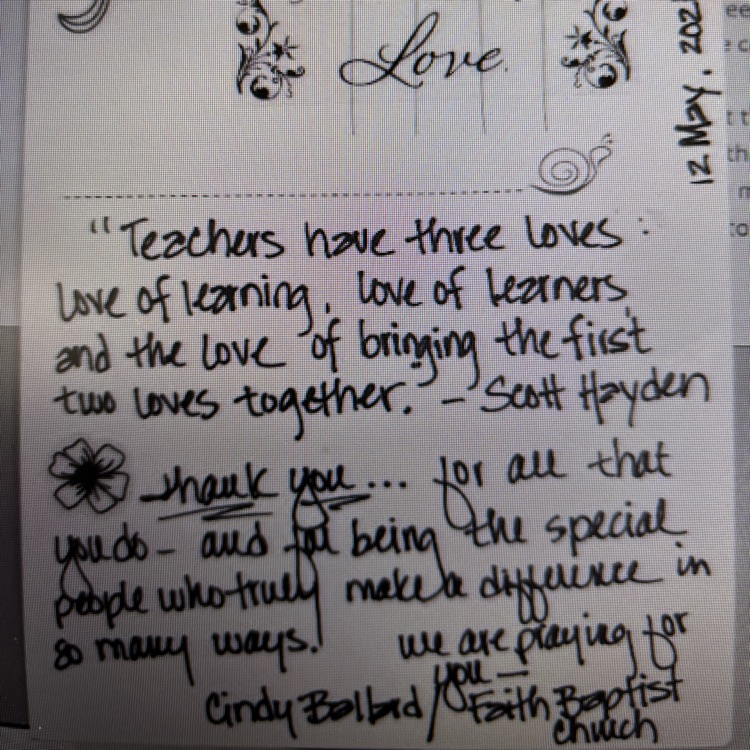 Love
12 May, 202
"Teachers have three loves:
love of learning, love of learners,
and the love of bringing the first
two loves together." - Scott Hayden
thank you... for all that
you do - and for being the special
people who truly make a difference in
so many ways. we are praying for
you -
Cindy Ballard / Faith Baptist
church